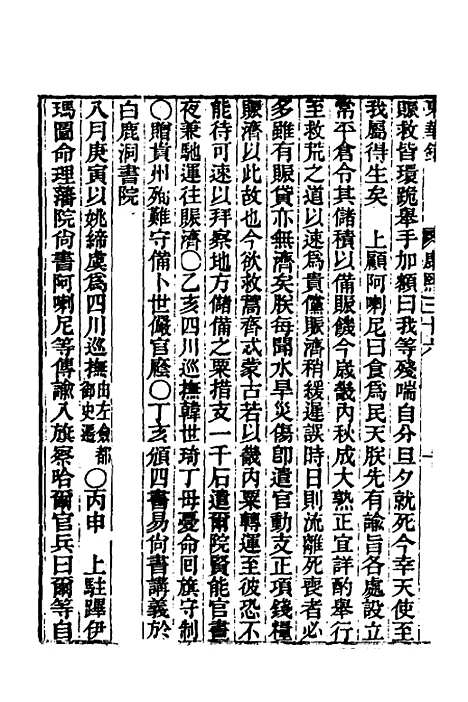 東華錄 康熙三十六
賑救皆環跪舉手加額曰我等殘喘自分旦夕就死今幸天使至
我屬得生矣 上顧阿喇尼曰食爲民天朕先有諭旨各處設立
常平倉令其儲積以備賑饑今歲畿內秋成大熟正宜詳酌舉行
至救荒之道以速爲貴儻賑濟稍緩遲誤時日則流離死喪者必
多雖有賑貸亦無濟矣朕每聞水旱災傷即遣官動支正項錢糧
賑濟以此故也今欲救蒿齊忒蒙古若以畿內粟轉運至彼恐不
能待可速以拜察地方儲備之粟措支一千石遣爾院賢能官晝
夜兼馳運往賑濟○乙亥四川巡撫韓世琦丁母憂命回旗守制
○贈貴州殉難守備卜世儼官廕○丁亥頒四書易尚書講義於
白鹿洞書院
八月庚寅以姚締虞爲四川巡撫由左僉都御史遷○丙申 上駐蹕伊
瑪圖命理藩院尚書阿喇尼等傳諭入旗察哈爾官兵曰爾等自